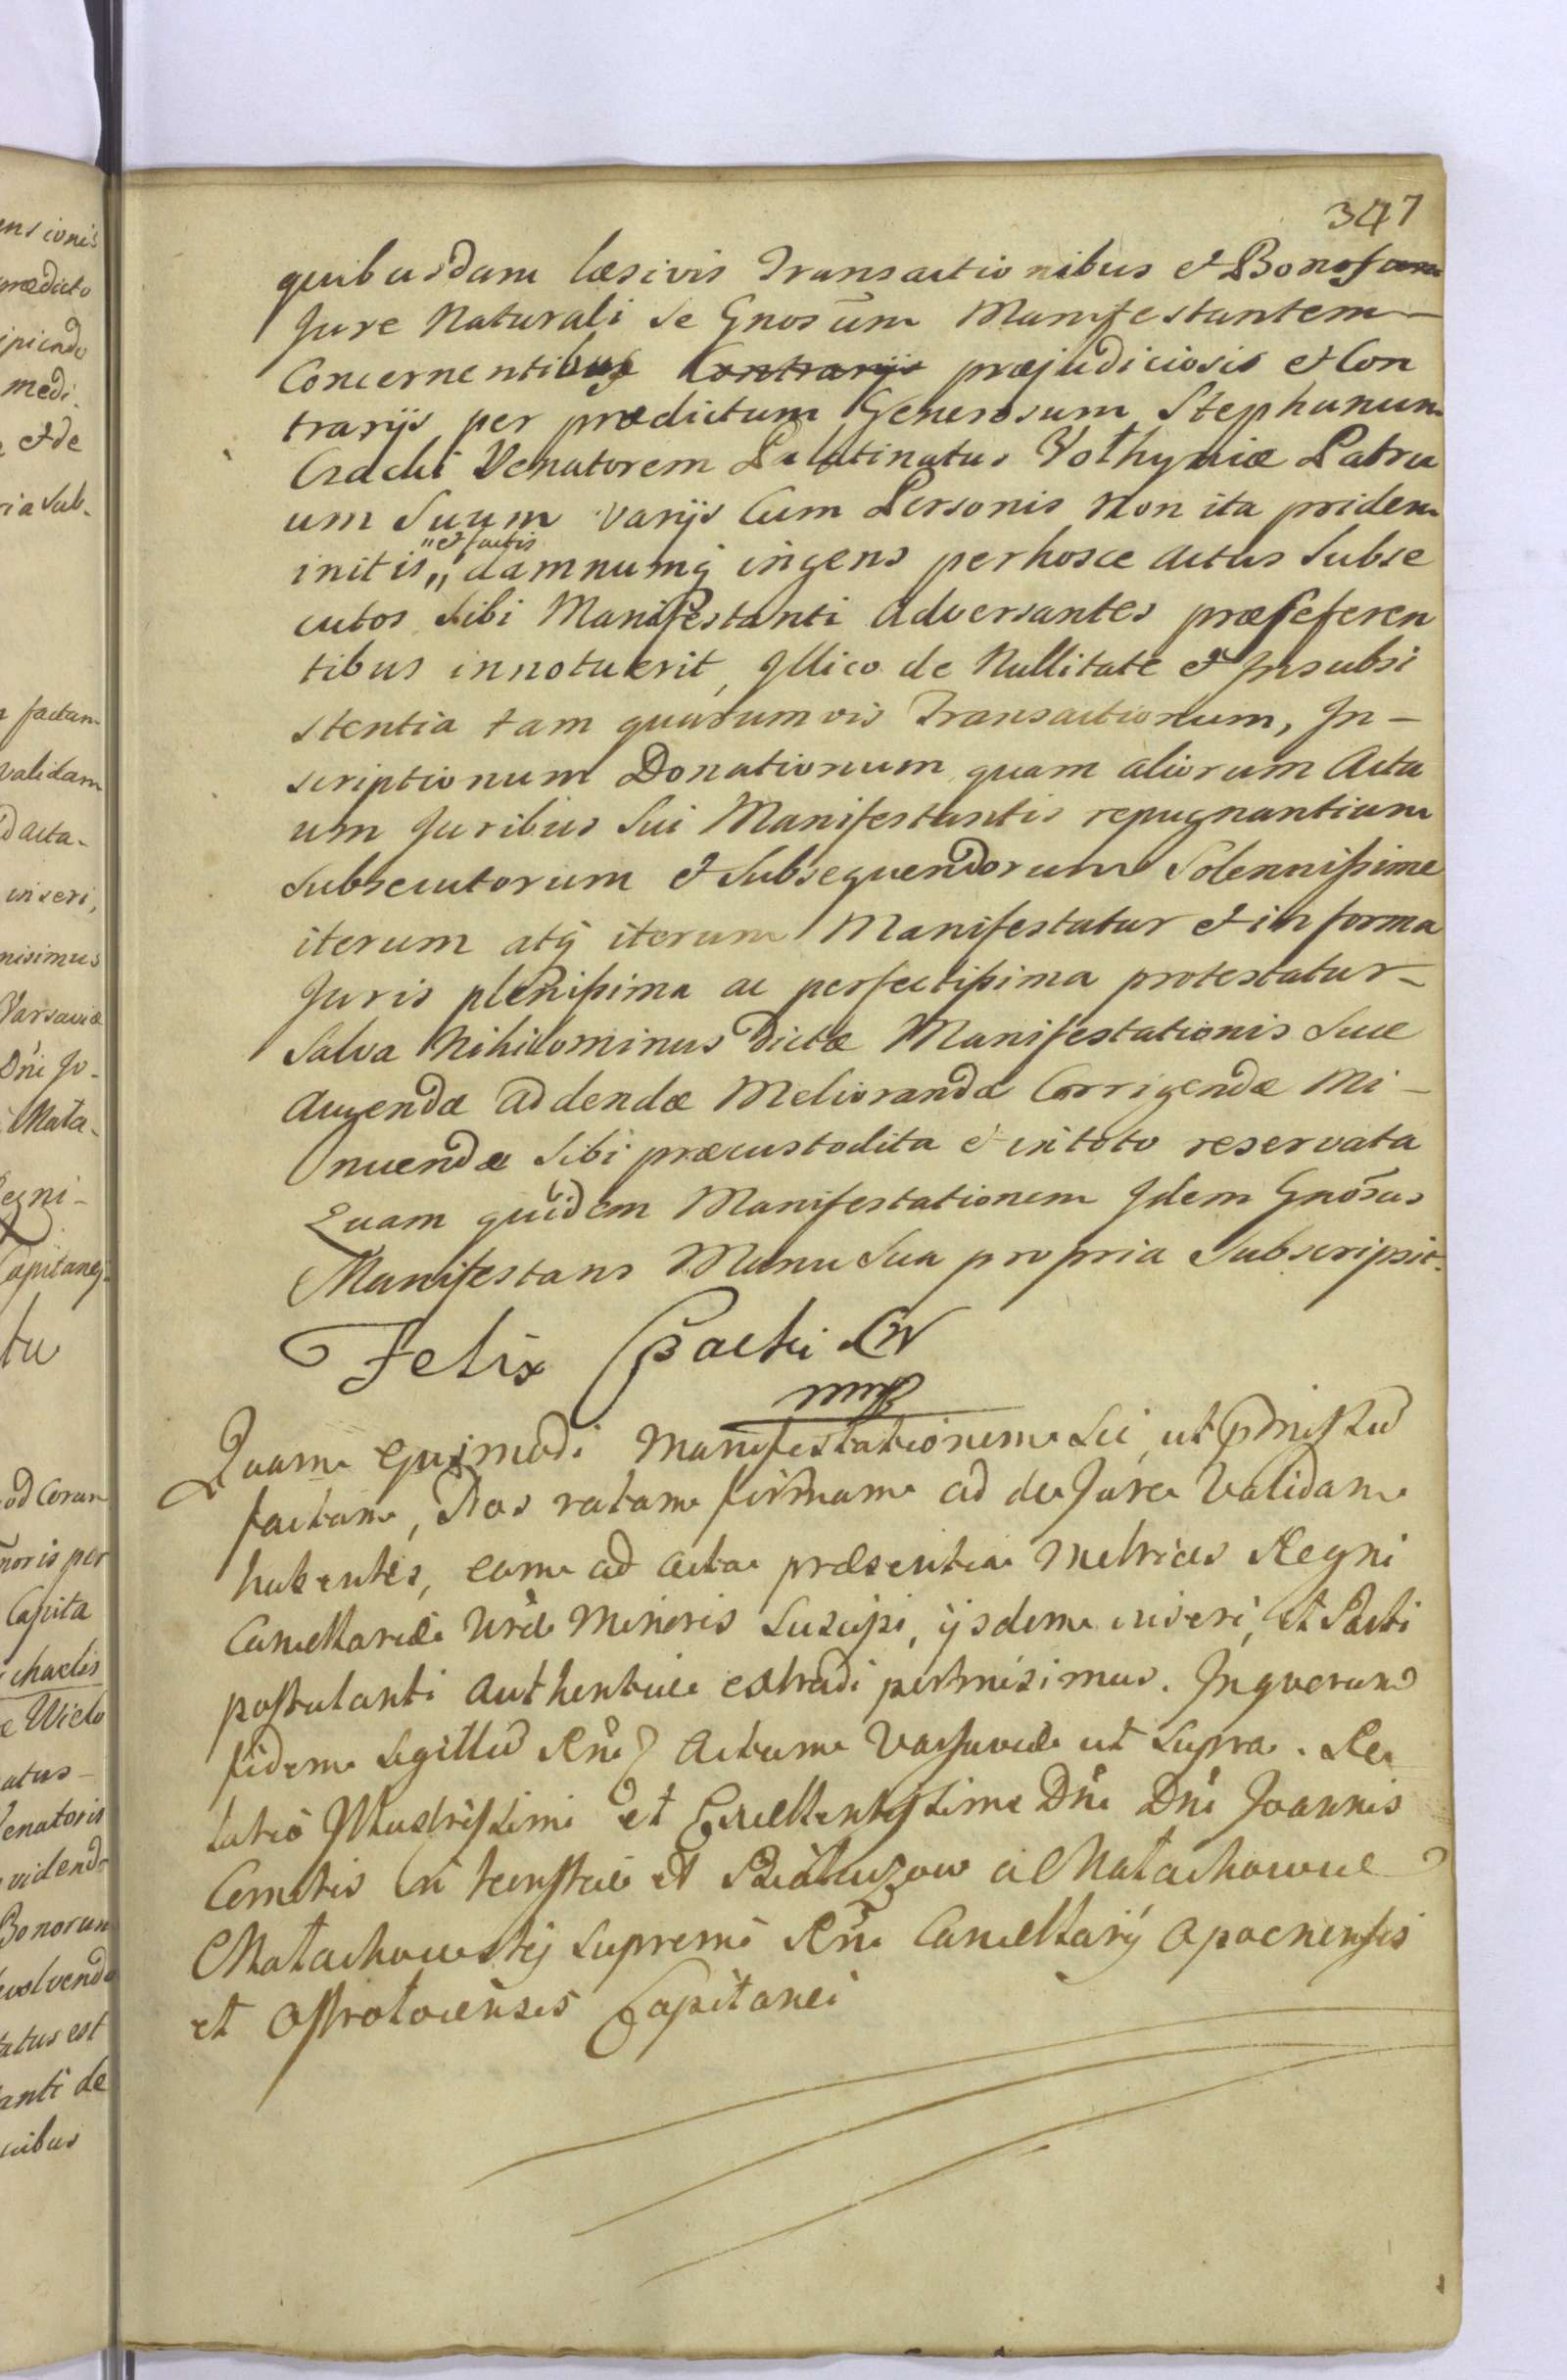 347
quibusdam læsivis Transactionibus et Bonorum
Jure Naturali se Gnosum Manifestantem
Concernentibus Contrarijs præjudiciosis et Con
trarijs per prædictum Generosum Stephanum
Czacki Venatorem Palatinatus Vołhyniæ Patru
um Suum varijs Cum Personis Non ita pridem
initis „et factis„ damnumq ingens perhosce actus Subse
cutos Sibi Manifestanti adversantes præseferen
tibus innotuerit, Illico de Nullitate et Insubsi
stentia tam quarumvis Transactionum, In-
scriptionum Donationum quam aliorum Actu
um Juribus Sui Manifestantis repugnantium
Subsecutorum et Subsequendorum Solennissime
iterum atq iterum Manifestatur et in forma
Juris plenissima ac perfectissima protestatur
Salva Nihilominus dictæ Manifestationis Suæ
Augendæ addendæ Meliorandæ Corrigendæ Mi-
nuendæ Sibi præcustodita et in toto reservata
Quam quidem Manifestationem Idem Gnosus
Manifestans Manu Sua propria Subscripsit.
Felix Czacki
mmp
Quam ejusmodi Manifestationem Sic ut
factam, Nos ratam firmam ad de Jure Validam
habentes, eam ad acta præsentia Metrices Regni
Cancellariæ Nræ Minoris Suscipi, ijsdem inseri, et Parti
postulanti authentice extradi permisimus. In quorum
fidem Sigillū Rni Actum Varsaviæ ut Supra. Re
latio Illustrissimi et Excellentissimi Dni Dni Joannis
Comitis in Konskie et Białaczow a Małachowice
Małachowskij Supremi Rni Cancellarij Opocnensis
et Ostrołocensis Capitanei